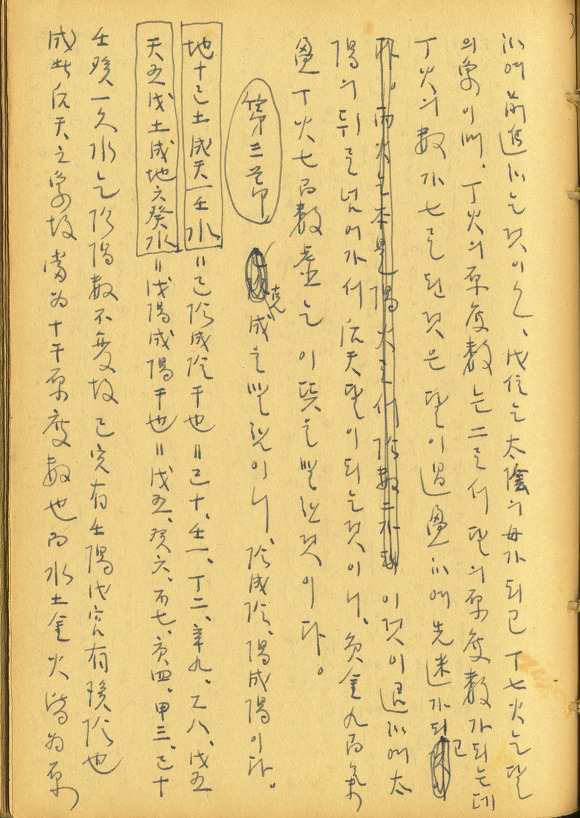 前進하는것이오、戊位는 太陰의 母가 되고 丁七火는 달
의 象이며、丁火의 原度數는 二로서 달의 原度數가 되는데
丁火의 數가 七로 된것은 달이 過盈 에 先迷가 되고
丙火는 本是 陽火로서 陰數二가 이것이 에 太
陽의 뒤를 넘어가서 后天달이 되는것이니、庚金九而氣
盈 丁火七而數虛는 이뜻을 말한것이다。
第三節 克成을 말함이니、陰成陰、陽成陽이다。
地十己土成天一壬水、=己陰成陰干也=己十、壬一、丁二、辛九、乙八、戊五
天五戊土成地六癸水=戊陽成陽干也=戊五、癸六、丙七、庚四、甲三、己十
壬癸一六水는 陰陽數不變故 己宮有壬陽 戊宮有癸陰也
成此后天之象故 當为十干原度數也而水土金火皆为原